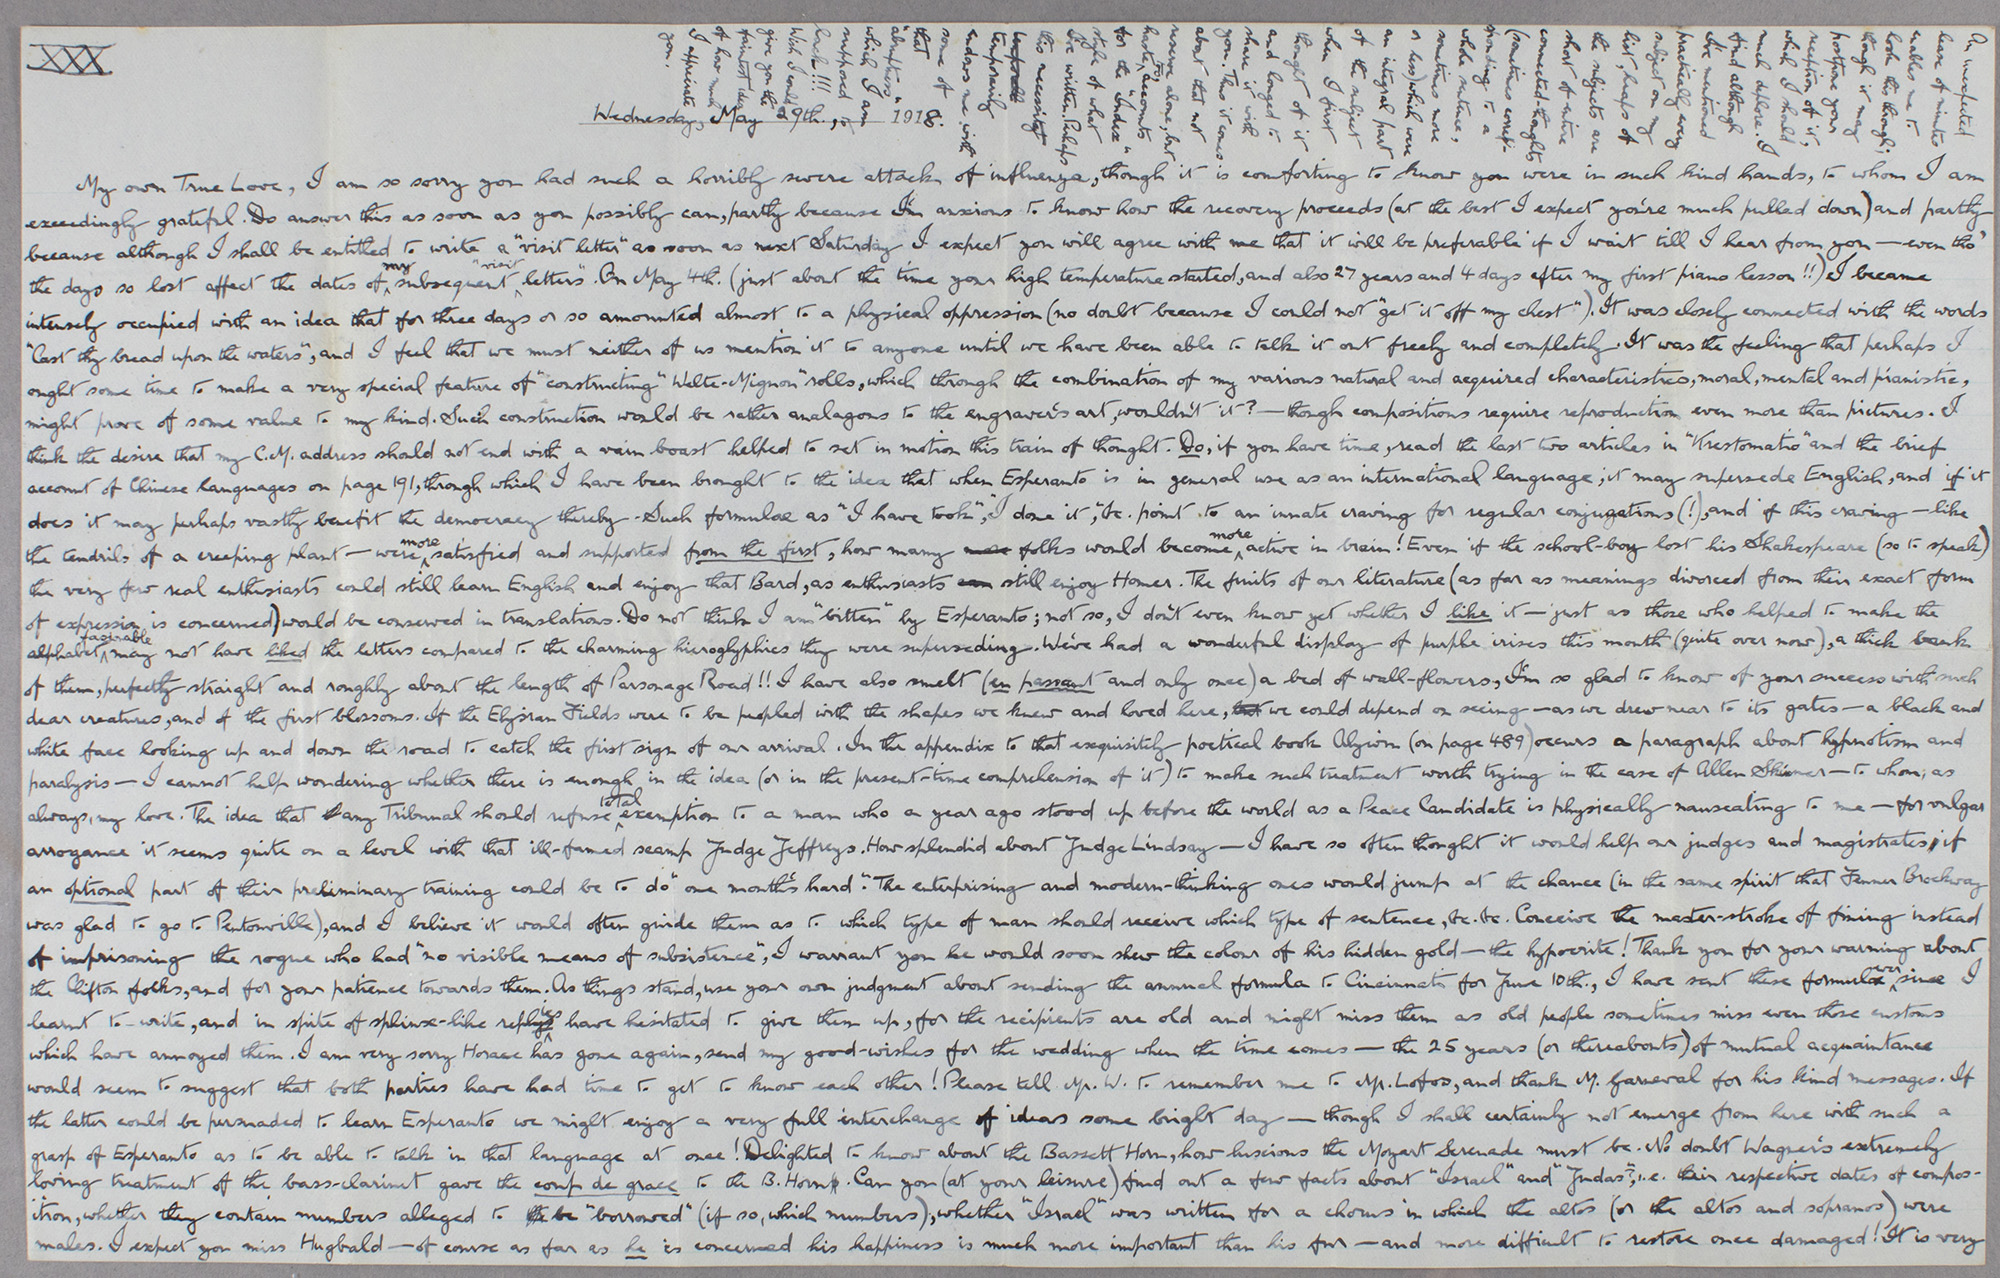 XXX
Wednesday, May 29th., 1918.
My own True Love, I am so sorry you had such a horribly severe attack of influenza, though it is comforting to know you were in such kind hands, to whom I am
exceedingly grateful. Do answer this as soon as you possibly can, partly because I'm anxious to know how the recovery proceeds (at the best I expect you're much pulled down) and partly
because although I shall be entitled to write a "visit letter" as soon as next Saturday I expect you will agree with me that it will be preferable if I wait till I hear from you — even tho'
the days so lost affect the dates of my subsequent "visit letters". On May 4th. (just about the time your high temperature started, and also 27 years and 4 days after my first piano lesson!!) I became
intensely occupied with an idea that for three days or so amounted almost to a physical oppression (no doubt because I could not "get it off my chest"). It was closely connected with the words
"Cast thy bread upon the waters", and I feel that we must neither of us mention it to anyone until we have been able to talk it out freely and completely. It was the feeling that perhaps I
ought some time to make a very special feature of "constructing" Welte-Mignon "rolls, which through the combination of my various natural and acquired characteristics, moral, mental and pianistic,
might prove of some value to my kind. Such construction would be rather analagous to the engraver's art, wouldn't it? — though compositions require reproduction even more than pictures. I
think the desire that my C.M. address should not end with a vain boast helped to set in motion this train of thought. Do, if you have time, read the last two articles in "Krestomatio" and the brief
account of Chinese languages on page 191, through which I have been brought to the idea that when Esperanto is in general use as an international language, it may supersede English, and if it
does it may perhaps vastly benefit the democracy thereby. Such formulae as "I have took", "I done it", &c. point to an innate craving for regular conjugations (!), and if this craving — like
the tendrils of a creeping plant — were more satisfied and supported from the first, how many folks would become more active in brain! Even if the school-boy lost his Shakespeare (so to speak)
the very few real enthusiasts could still learn English and enjoy that Bard, as enthusiasts still enjoy Homer. The fruits of our literature (as far as meanings divorced from their exact form
of expression is concerned) would be conserved in translations. Do not think I am "bitten" by Esperanto; not so, I don't even know yet whether I like it — just as those who helped to make the
alphabet may not have liked the letters compared to the charming hieroglyphics they were superseding. We've had a wonderful display of purple irises this month (quite over now), a thick bank
of them, perfectly straight and roughly about the length of Parsonage Road!! I have also smelt (en passant and only once) a bed of wall-flowers, I'm so glad to know of your success with such
dear creatures, and of the first blossoms. If the Elysian Fields were to be peopled with the shapes we knew and loved here, we could depend on seeing — as we drew near to its gates — a black and
white face looking up and down the road to catch the first sign of our arrival. In the appendix to that exquisitely poetical book Olyion (on page 489) occurs a paragraph about hypnotism and
paralysis — I cannot help wondering whether there is enough in the idea (or in the present-time comprehension of it) to make such treatment worth trying in the case of Allen Skinner — to whom, as
always, my love. The idea that any Tribunal should refuse total exemption to a man who a year ago stood up before the world as a Peace Candidate is physically nauseating to me — for vulgar
arrogance it seems quite on a level with that ill-famed scamp Judge Jeffreys. How splendid about Judge Lindsay — I have so often thought it would help our judges and magistrates, if
an optional part of their preliminary training could be to do "one month's hard". The enterprising and modern-thinking ones would jump at the chance (in the same spirit that Fenner Brockway
was glad to go to Pentonville), and I believe it would often guide them as to which type of man should receive which type of sentence, &c. &c. Conceive the master-stroke of fining instead
of imprisoning the rogue who had "no visible means of subsistence", I warrant you he would soon shew the colour of his hidden gold — the hypocrite! Thank you for your warning about
the Clifton folks, and for your patience towards them. As things stand, use your own judgment about sending the annual formula to Cincinnati for June 10th., I have sent these formulae ever since I
learnt to write, and in spite of sphinx-like replies have hesitated to give them up, for the recipients are old and might miss them as old people sometimes miss even those customs
which have annoyed them. I am very sorry Horace has gone again, send my good-wishes for the wedding when the time comes — the 25 years (or thereabouts) of mutual acquaintance
would seem to suggest that both parties have had time to get to know each other! Please tell Mr. W. to remember me to Mr. Lofos, and thank M. Garneval for his kind messages. If
the latter could be persuaded to learn Esperanto we might enjoy a very full interchange of ideas some bright day — though I shall certainly not emerge from here with such a
grasp of Esperanto as to be able to talk in that language at once! Delighted to know about the Bassett Horn, how luscious the Mozart Serenade must be. No doubt Wagner's extremely
loving treatment of the bass-clarinet gave the coup de grace to the B. Horn. Can you (at your leisure) find out a few facts about "Israel" and "Judas", i.e. their respective dates of compos-
ition, whether they contain numbers alleged to be "borrowed" (if so, which numbers), whether "Israel" was written for a chorus in which the altos (or the altos and sopranos) were
males. I expect you miss Hugbald — of course as far as he is concerned his happiness is much more important than his fur — and more difficult to restore once damaged! It is very
An unexpected
lease of minutes
enables me to
book this though;
though it may
postpone your
reception of it,
which I should
much deplore. I
find although
I've mentioned
practically every
subject on my
list, heaps of
the subjects are
short of entire
connected-thoughts
(sometimes corres-
ponding to a
whole sentence,
sometimes more
or less) which were
an integral part
of the subject
when I first
thought of it
and longed to
share it with
you. This it comes
about that not
reserve alone, but
haste too, accounts
for the "Index"
style of what
I've written. Perhaps
this necessity
temporarily
endows me with
some of
that
"abruptness"
which I am
supposed to
lack!!!
Wish I could
give you the
faintest idea
of how much
I appreciate
you.